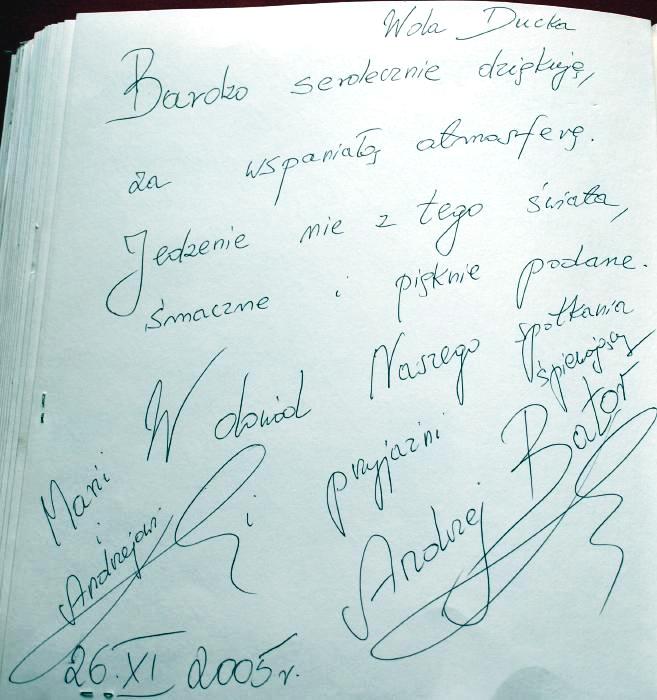 Wola Ducka
Bardzo serdecznie dziękuję,
za wspaniałą atmosferę.
Jedzenie nie z tego świata,
smaczne i pięknie podane.
W dowód Naszego spotkania
i przyjaźni śpiewający
Andrzej Bator
Marii
i
Andrzejowi
26.XI 2005r.